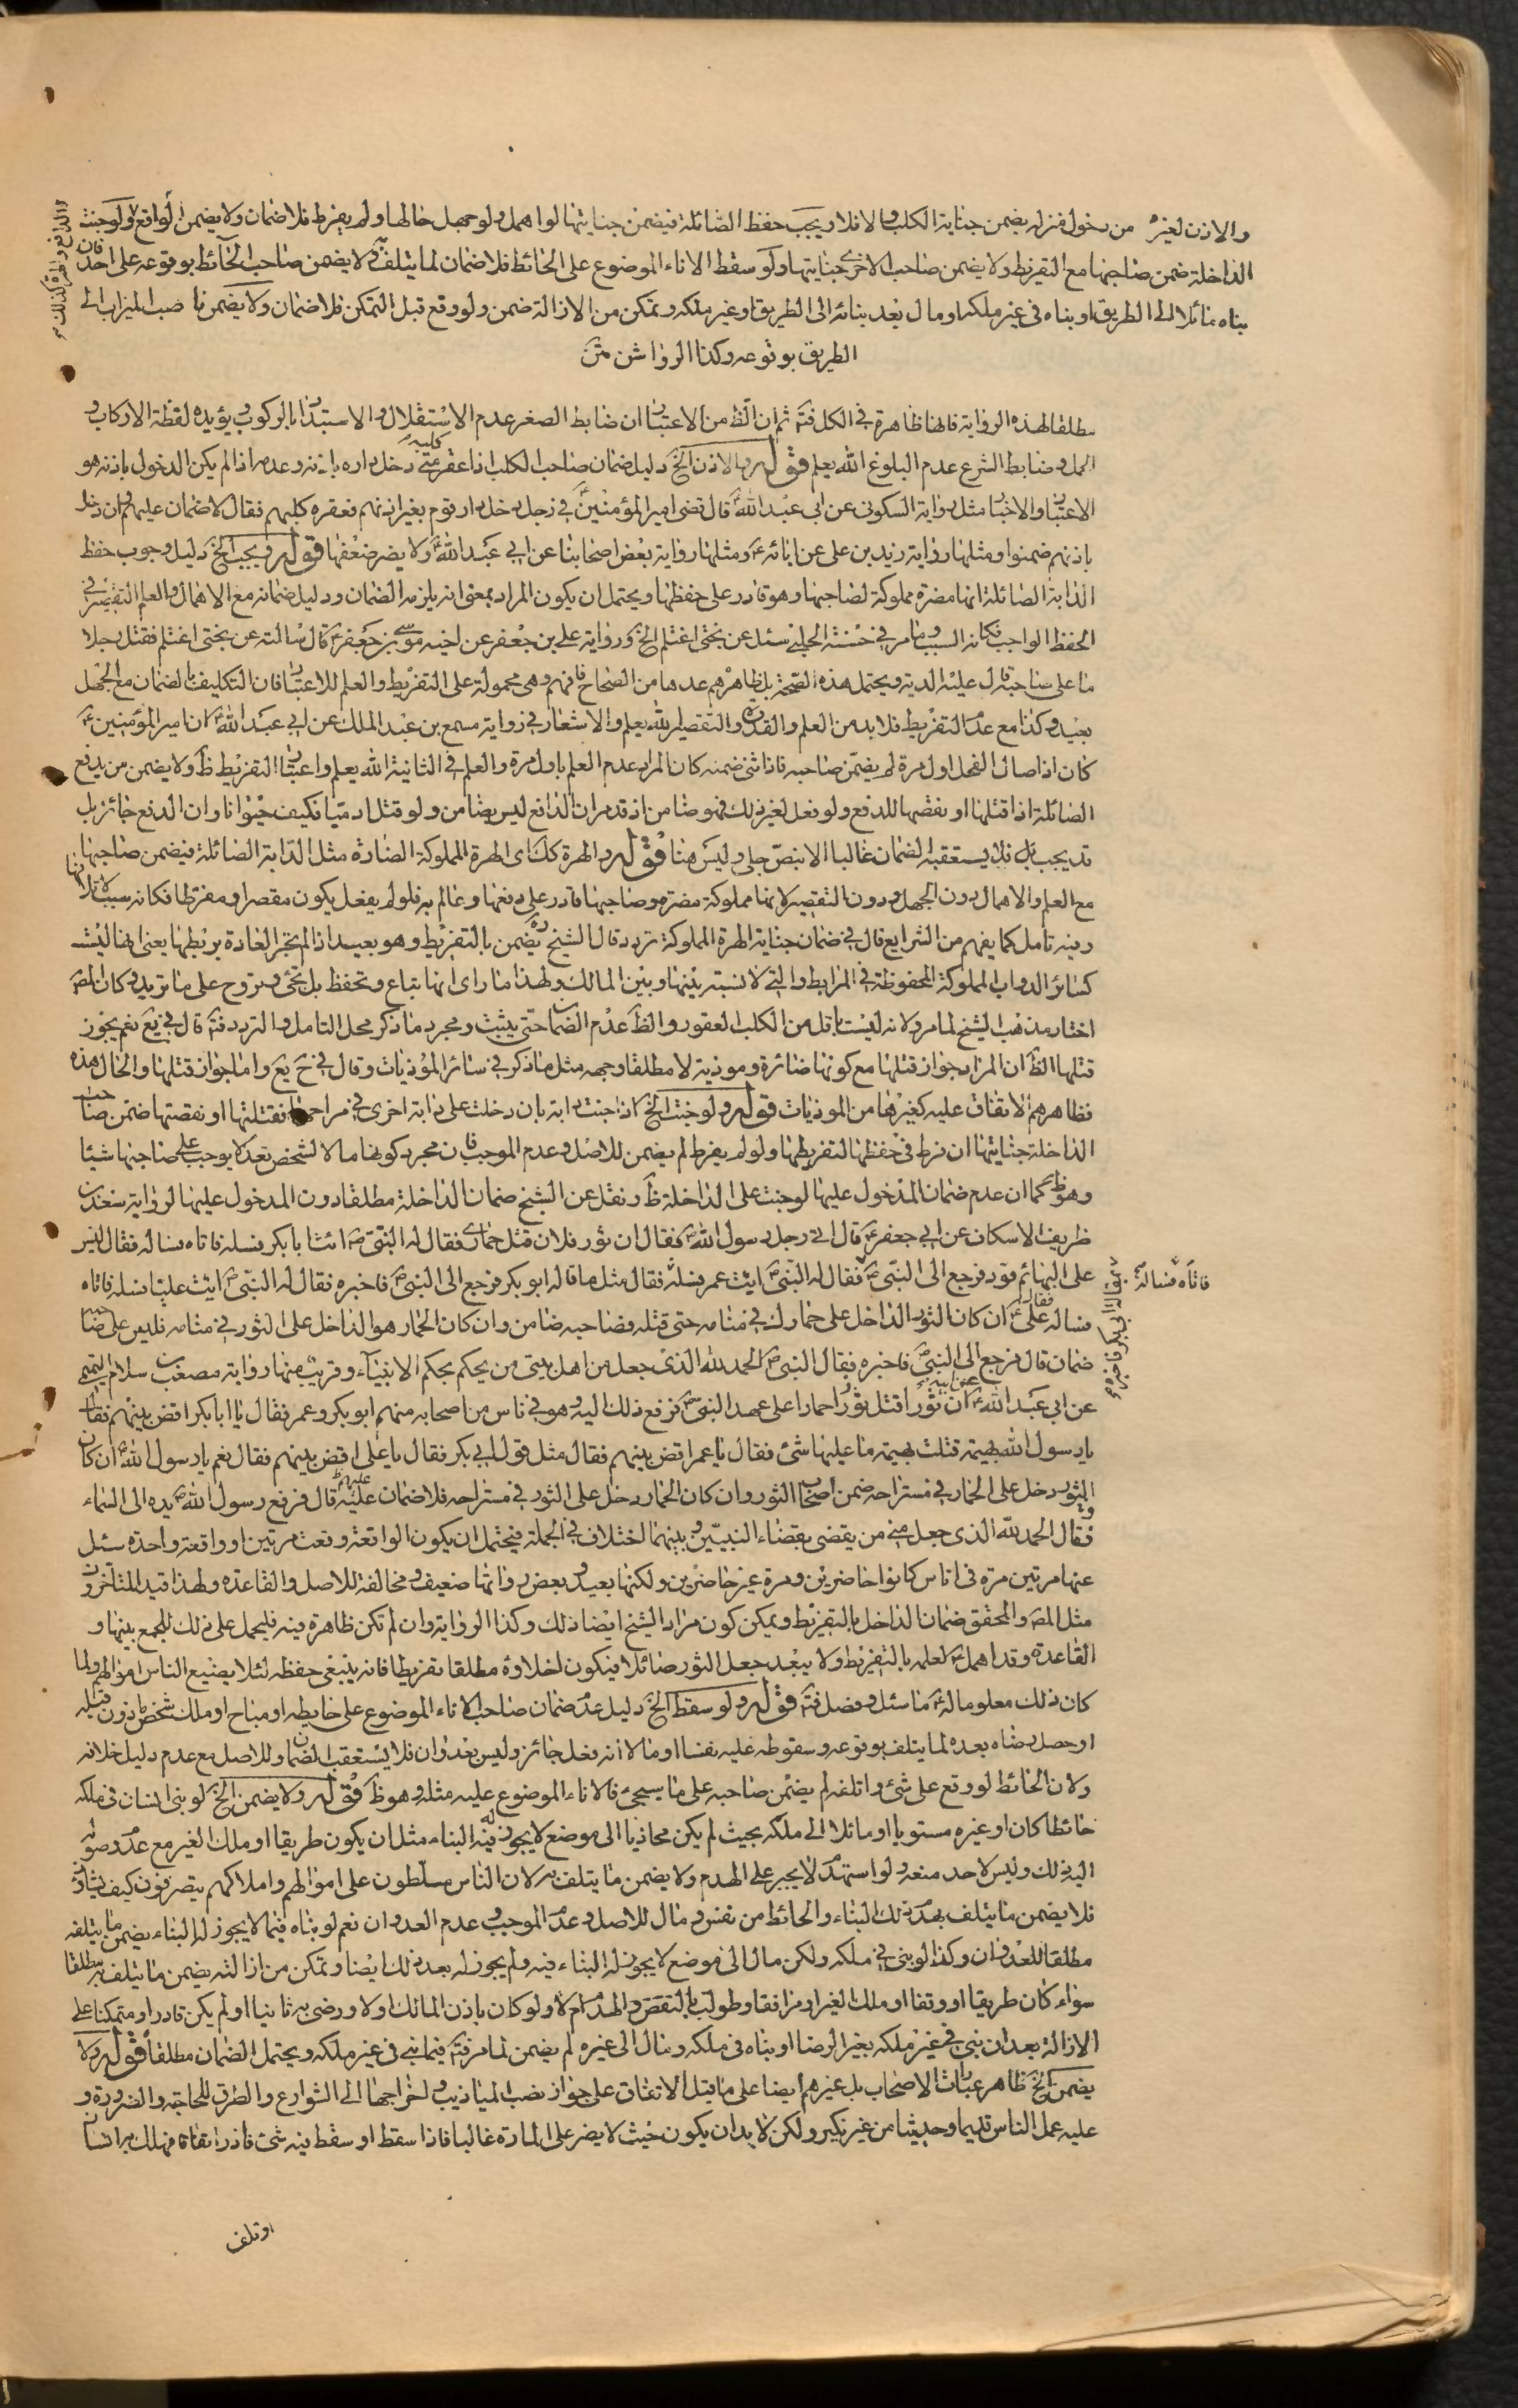 والاذن لغيره من دخول منزله يضمن جناية الكلب والا فلا ويجب حفظ الصائلة فيضمن جنايتها لو اهمل ولو جهل حالها او لم يفرط فلا ضمان ولا يضمن لو دافع ولو جنت
الداخلة ضمن صاحبها مع التفريط ولا يضمن صاحب الاخرى جنايتها ولو سقط الاناء الموضوع على الحائط فلا ضمان لما يتلف به ولا يضمن صاحب الحائط بوقوعه على احد فان
بناه مائلا الى الطريق او بناه في غير ملكه او مال بعد بنائه الى الطريق او غير ملكه وتمكن من الازالة ضمن ولو وقع قبل التمكن فلا ضمان ولا يضمن ناصب الميزاب الى
الطريق بوقوعه وكذا الرواشن متن
والهرة كذلك
مطلقا لهذه الرواية فانها ظاهرة في الكل فتم ثم ان الظ من الاعتبار ان ضابط الصغر عدم الاستقلال والاستبداد بالركوب ويؤيده لفظة الاركاب و
الحمل وضابط الشرع عدم البلوغ الله يعلم قوله وبالاذن الخ دليل ضمان صاحب الكلب اذا عقر كلبه من دخل داره باذنه وعدمه اذا لم يكن الدخول باذنه هو
الاعتبار والاخبار مثل رواية السكوني عن ابي عبد الله ع قال قضى امير المؤمنين ع في رجل دخل دار قوم بغير اذنهم فعقره كلبهم فقال لا ضمان عليهم وان دخل
باذنهم ضمنوا ومثلها رواية زيد بن علي عن ابائه ع ومثلها رواية بعض اصحابنا عن ابي عبد الله ع ولا يضر ضعفها قوله ويجب الخ دليل وجوب حفظ
الدابة الصائلة انها مضرة مملوكة لصاحبها وهو قادر على حفظها ويحتمل ان يكون المراد بمعنى انه يلزمه الضمان ودليل ضمانه مع الاهمال والعلم التقصير في
الحفظ الواجب فكانه السبب وما مر في حسنة الحلبي سئل عن بختي اغتلم الخ ورواية علي بن جعفر عن اخيه موسى بن جعفر ع قال سالته عن بختي اغتلم فقتل رجلا
ما على صاحبه قال عليه الدية ويحتمل هذه الصحة بل ظاهرهم عدها من الصحاح فافهم وهي محمولة على التفريط والعلم للاعتبار فان التكليف بالضمان مع الجهل
بعيد وكذا مع عدم التفريط فلا بد من العلم والقدرة والتقصير الله يعلم والاشعار في رواية مسمع بن عبد الملك عن ابي عبد الله ع ان امير المؤمنين ع
كان اذا صال الفحل اول مرة لم يضمن صاحبه فاذا ثنى ضمنه كان المراد عدم العلم باول مرة والعلم في الثانية الله يعلم واعتبار التفريط ظ ولا يضمن من يدفع
الصائلة اذا قتلها او نقصها للدفع ولو فعل لغير ذلك فهو ضامن اذ قد مر ان الدافع ليس بضامن ولو قتل ادميا فكيف حيوانا وان الدفع جائز بل
قد يجب بل فلا يستعقبه الضمان غالبا الا بنص جلي وليس هنا قوله والهرة كك اى الهرة المملوكة الضارة مثل الدابة الصائلة فيضمن صاحبها
مع العلم والاهمال دون الجهل ودون التقصير لانها مملوكة مضرة وصاحبها قادر على دفعها وعالم به فلو لم يفعل يكون مقصرا ومفرطا فكانه سبب لاتلافها
وفيه تامل كما يفهم من الشرايع قال في ضمان جناية الهرة المملوكة تردد قال الشيخ ره يضمن بالتفريط وهو بعيد اذا لم تجر العادة بربطها يعني انها ليست
كسائر الدواب المملوكة المحفوظة في المرابط والتي لا نسبة بينها وبين المالك ولهذا ما راى انها تباع وتحفظ بل تجئ وتروح على ما تريد وكان المص
اختار مذهب الشيخ لما مر ولانه ليست باقل من الكلب العقور والظ عدم الضمان حتى يثبت ومجرد ما ذكر محل التامل والتردد فتم قال في يع نعم يجوز
قتلها الظ ان المراد جواز قتلها مع كونها ضائرة وموذية لا مطلقا وجهه مثل ما ذكر في سائر الموذيات وقال في ح يع واما جواز قتلها والحال هذه
فظاهرهم الاتفاق عليه كغيرها من الموذيات قوله ولو جنت الخ اذا جنت دابة بان دخلت على دابة اخرى في مراحها فقتلتها او نقصتها ضمن صاحب
الداخلة جنايتها ان فرط في حفظها لتفريطها ولو لم يفرط لم يضمن للاصل وعدم الموجب فان مجرد كونها مالا لشخص بعد لا يوجب على صاحبها شيئا
وهو ظ كما ان عدم ضمان المدخول عليها لو جنت على الداخلة ظ ونقل عن الشيخ ضمان الداخلة مطلقا دون المدخول عليها لرواية سعد بن
ظريف الاسكاف عن ابي جعفر ع قال اتى رجل رسول الله ص فقال ان ثور فلان قتل حماري فقال له النبي ص ائت ابا بكر فسله فاتاه فساله فقال ليس
على البهائم قود فرجع الى النبي ص فقال له النبي ص ايت عمر فسله فقال مثل ما قاله ابو بكر فرجع الى النبي ص فاخبره فقال له النبي ص ايت عليا فسله فاتاه
فاتاه فساله
فساله فقال علي ع ان كان الثور الداخل على حمارك في منامه حتى قتله فصاحبه ضامن وان كان الحمار هو الداخل على الثور في منامه فليس على صاحبه
ضمان قال فرجع الى النبي ص فاخبره فقال النبي ص الحمد لله الذى جعل من اهل بيتي من يحكم بحكم الانبياء وقريب منها رواية مصعب بن سلام التميمي
عن ابي عبد الله ع عن ابيه ع ان ثورا قتل حمارا على عهد النبي ص فرفع ذلك اليه وهو في ناس من اصحابه منهم ابو بكر وعمر فقال يا ابا بكر اقض بينهم فقال
يا رسول الله بهيمة قتلت بهيمة ما عليها شئ فقال يا عمر اقض بينهم فقال مثل قول ابي بكر فقال يا علي اقض بينهم فقال نعم يا رسول الله ان كان
الثور دخل على الحمار في مستراحه ضمن اصحاب الثور وان كان الحمار دخل على الثور في مستراحه فلا ضمان عليهم قال فرفع رسول الله ص يده الى السماء
فقال الحمد لله الذى جعل مني من يقضى بقضاء النبيين وبينهما اختلاف في الجملة فيحتمل ان يكون الواقعة وقعت مرتين او واقعة واحدة سئل
عنها مرتين مرة في اناس كانوا حاضرين ومرة غير حاضرين ولكنها بعيد وبعض رواتها ضعيف ومخالفة للاصل والقاعدة ولهذا قيد المتاخرون
مثل المص والمحقق ضمان الداخل بالتفريط ويمكن كون مراد الشيخ ايضا ذلك وكذا الرواية وان لم تكن ظاهرة فيه فليحمل على ذلك للجمع بينها و
القاعدة وقد اهمل ع لعلمه بالتفريط ولا يبعد جعل الثور صائلا فيكون اخلاؤه مطلقا تفريطا فانه ينبغي حفظه لئلا يضيع الناس اموالهم ولما
كان ذلك معلوما له ع ما سئل وفصل فتم قوله ولو سقط الخ دليل عدم ضمان صاحب الاناء الموضوع على حايطه او مباح او ملك شخص ماذون قبله
او حصل رضاه بعده لما يتلف بوقوعه وسقوطه عليه نفسا او مالا انه فعل جائز وليس بعدوان فلا يستعقب الضمان وللاصل مع عدم دليل خلافه
ولان الحائط لو وقع على شئ واتلفه لم يضمن صاحبه على ما سيجئ فالاناء الموضوع عليه مثله وهو ظ قوله ولا يضمن الخ لو بنى انسان في ملكه
حائطا كان او غيره مستويا او مائلا الى ملكه بحيث لم يكن محاذيا الى موضع لا يجوز له فيه البناء مثل ان يكون طريقا او ملك الغير مع عدم وصوله
اليه ذلك وليس لاحد منعه ولو استهدم لا يجبر على الهدم ولا يضمن ما يتلف به لان الناس مسلطون على اموالهم واملاكهم يتصرفون كيف يشاؤن
فلا يضمن ما يتلف بهدم ذلك البناء والحائط من نفس ومال للاصل وعدم الموجب وعدم العدوان نعم لو بناه فيما لا يجوز له البناء يضمن ما يتلفه
مطلقا للعدوان وكذا لو بنى في ملكه ولكن مال الى موضع لا يجوز له البناء فيه ولم يجوز له بعد ذلك ايضا وتمكن من ازالته يضمن ما يتلف به مطلقا
سواء كان طريقا او وقفا او ملك الغير او مرافقا وطولب بالنقض والهدم ام لا ولو كان باذن المالك اولا ورضى به ثانيا او لم يكن قادرا ومتمكنا على
الازالة بعد ان بنى في غير ملكه بغير الرضا او بناه في ملكه ومال الى غيره لم يضمن لما مر فتم فيما بنى في غير ملكه ويحتمل الضمان مطلقا قوله ولا
يضمن الخ ظاهر عبارات الاصحاب بل غيرهم ايضا على ما قيل الاتفاق على جواز نصب الميازيب واخراجها الى الشوارع والطرق للحاجة والضرورة و
عليه عمل الناس قديما وحديثا من غير نكير ولكن لا بد ان يكون حيث لا يضر على المارة غالبا فاذا سقط او سقط منه شئ قاذرا اتفاقا فهلك به انسان
او تلف